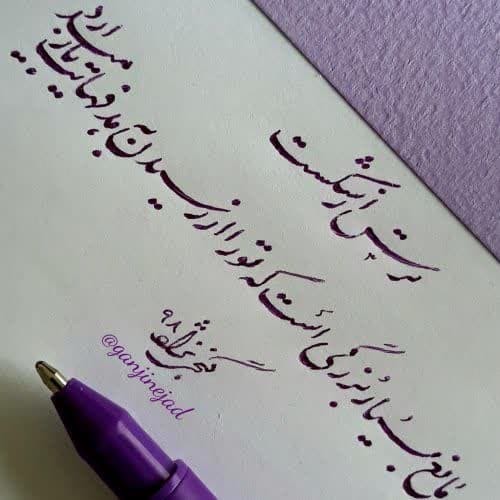 ترس از شکست
مانع بسیار بزرگی است که تو را از رسیدن به هدفهایت باز میدارد
گنجی نژاد ۹۸
@ganjinejad